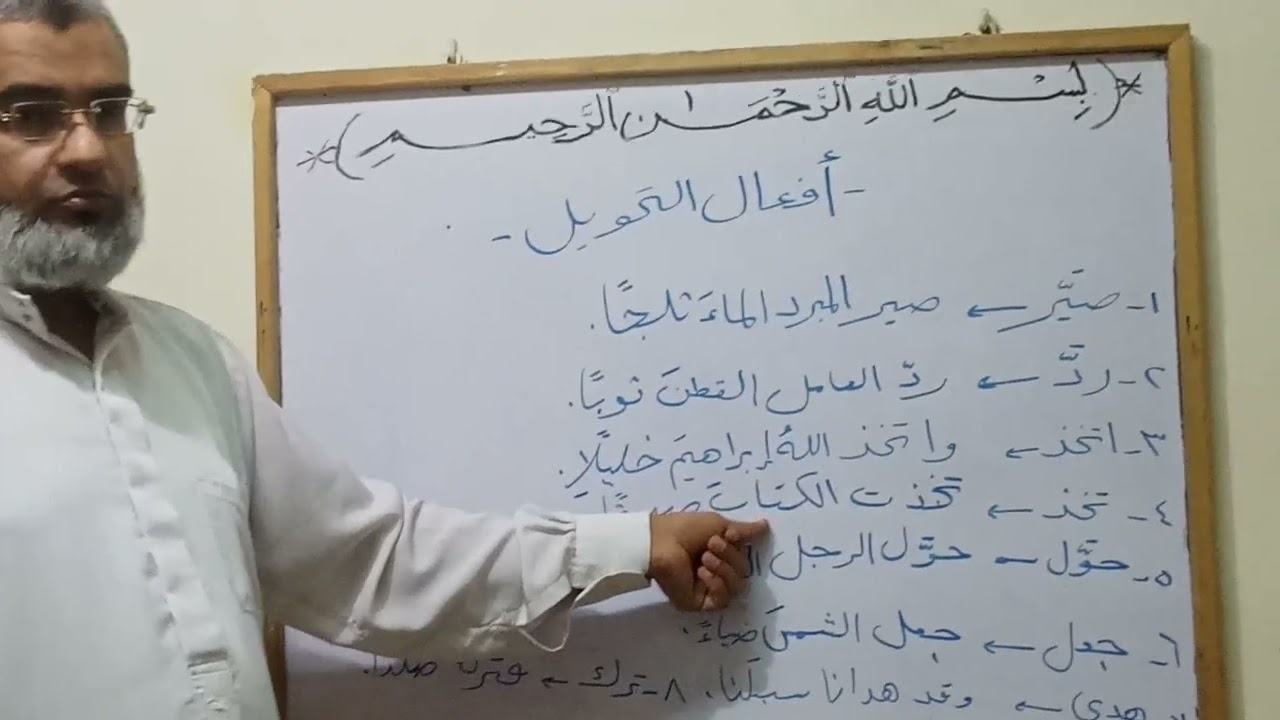 *(بِسْمِ اللَّهِ الرَّحْمَٰنِ الرَّحِيمِ)*
- أفعال التحويل -
١- صَيَّر ← صير المبرد الماءَ ثلجًا.
٢- ردَّ ← ردّ العامل القطنَ ثوبًا.
٣- اتخذ ← واتخذ اللهُ إبراهيمَ خليلًا.
٤- تخذ ← تخذت الكتابَ
٥- حوَّل ← حوَّل الرجل
٦- جعل ← جعل الشمسَ ضياءً.
هدى ← وقد هدانا سبلَنا. ٨- ترك ← فتركه صلدًا.